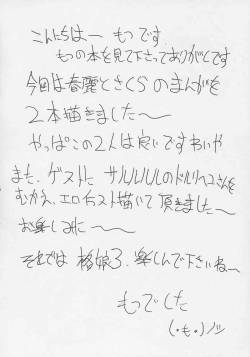 こんにちはー もっです
もっの本を見て下さってありがとです
今回は春麗とさくらのまんがを
2本描きました〜
やっぱこの2人は良いですわいや
また、ゲストに サルルルルのドルリヘコさんを
むかえ、エロゲスト描いて頂きました〜
お楽しみに〜
それでは 格娘3. 楽しんで下さいね〜
もっでした
(・も・)ノシ